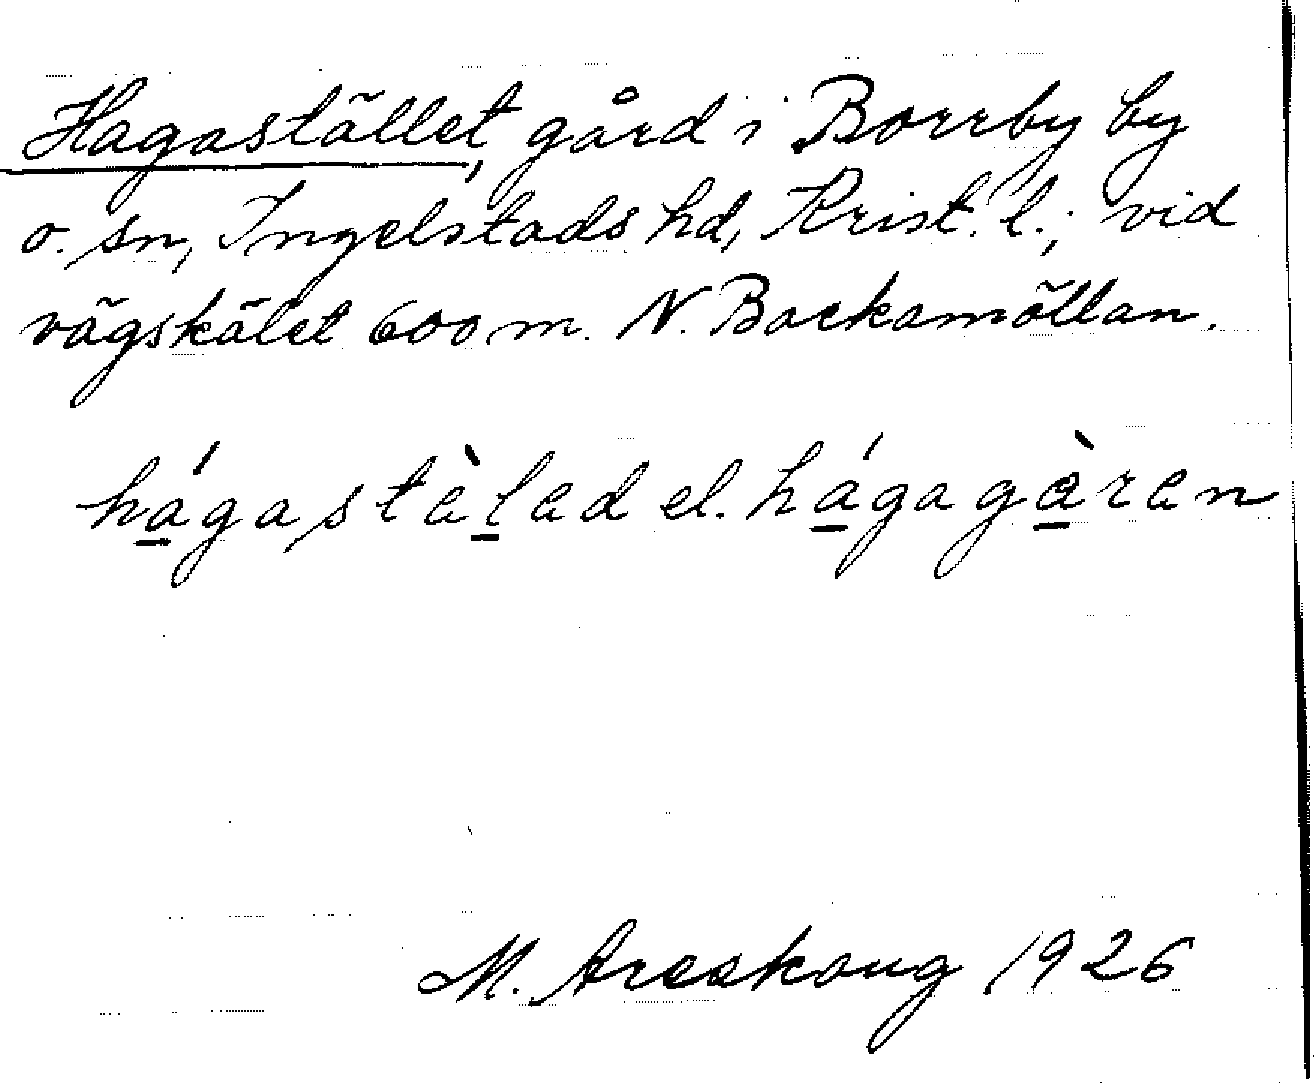 Hagastället, gård i Borrby by
o. sn, Ingelstads hd, Krist. l.; vid
vägskälet 600 m. N. Backamöllan.
hágastàlad el. hágagàren
M. Areskoug 1926